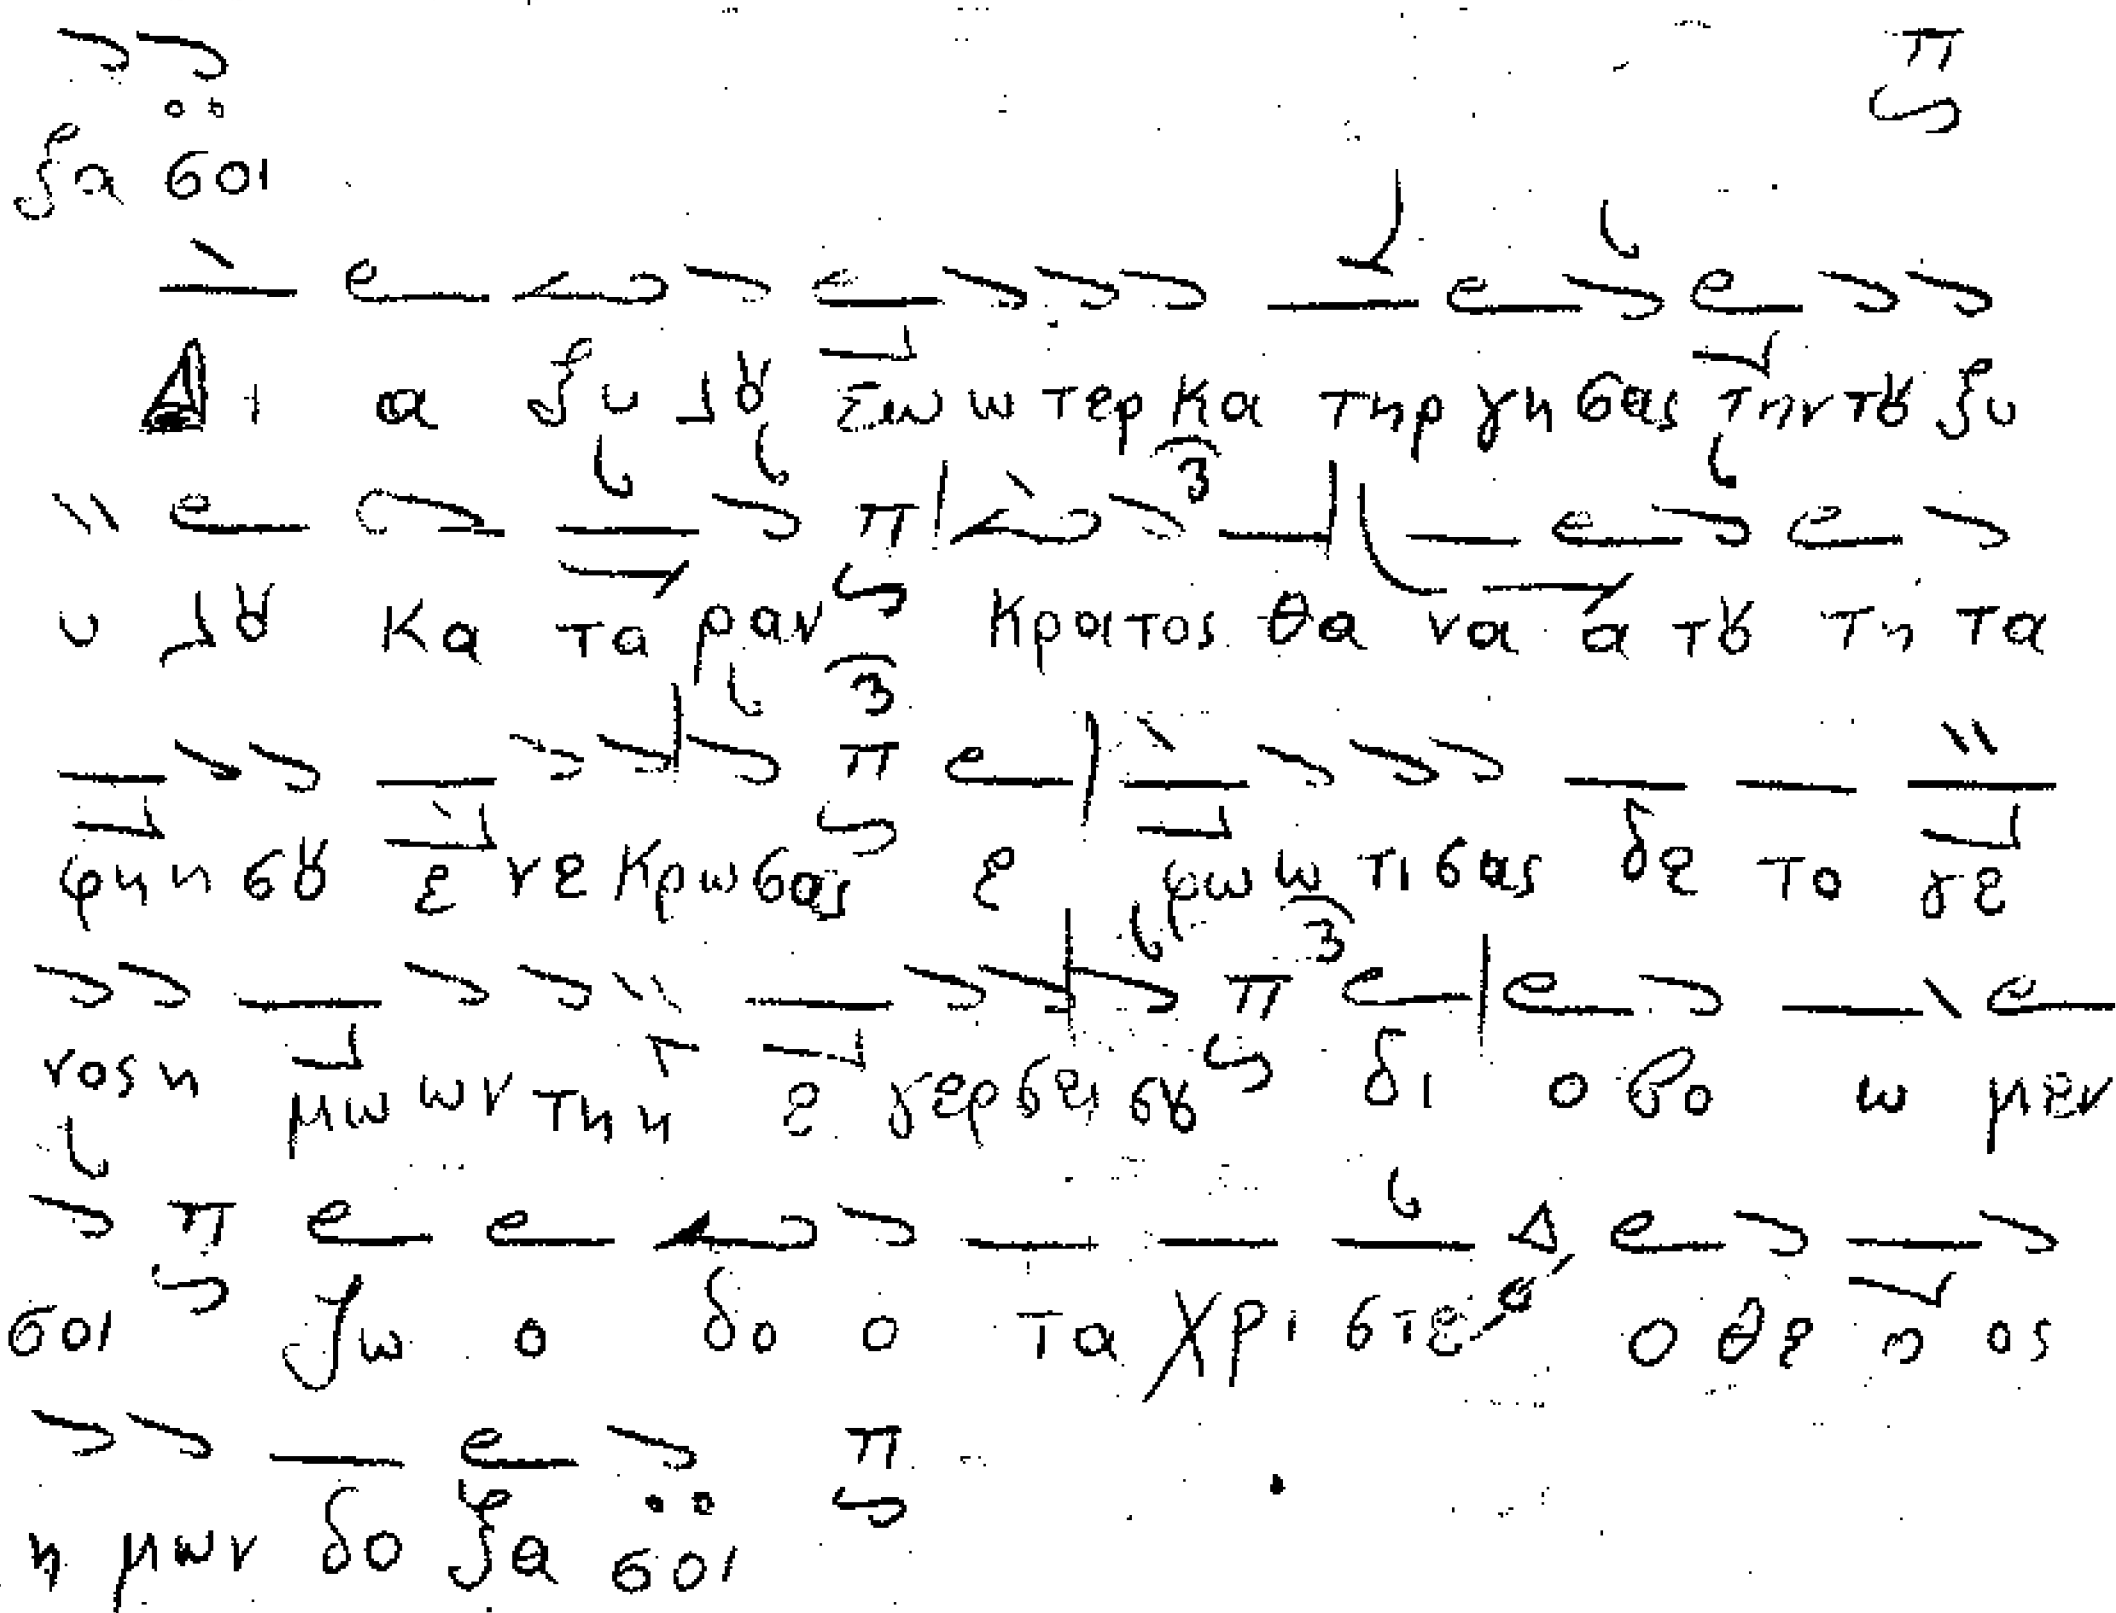 ξα σοι
Δι α ξυ λȣ Σω ω τερ κα τηρ γη σας την τȣ ξυ
υ λȣ κα τα ραν κρατος θα να α τȣ τη τα
φη η σȣ ε νε κρω σας ε φω ω τι σας δε το γε
νος η μω ων τη η ε γερ σει σȣ δι ο βο ω μεν
σοι Ζω ο δο ο τα Χρι στε ο θε ο ος
η μων δο ξα σοι